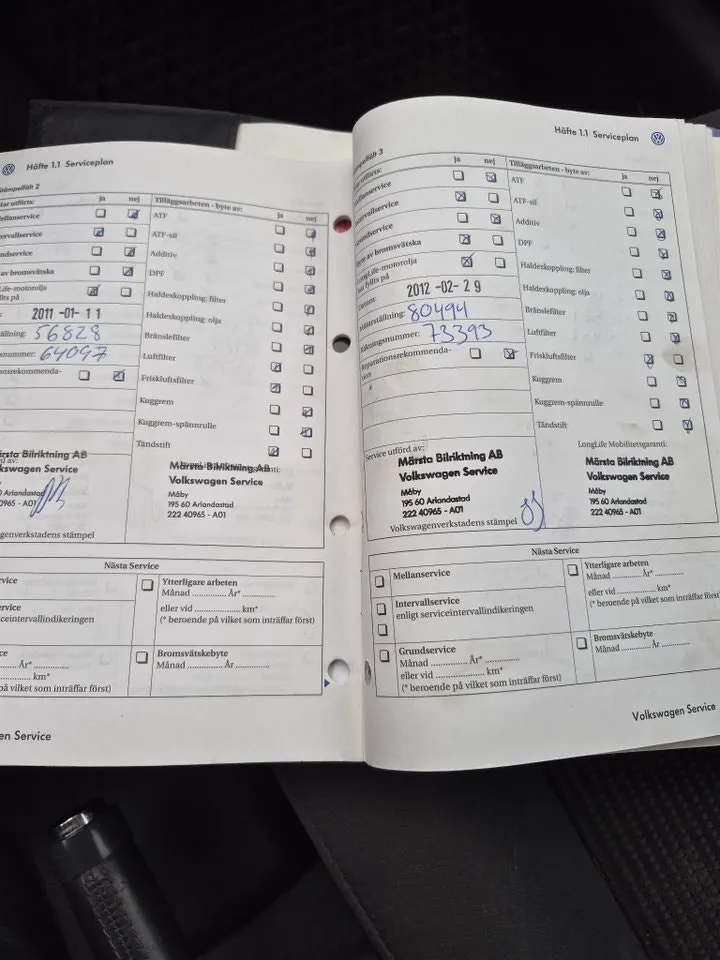 Häfte 1.1 Serviceplan
Stämpelfält 2
ja nej
Tilläggsarbeten - byte av: ja nej
ATF
ATF-sil
Additiv
av bromsvätska
DPF
Life-motorolja
Haldexkoppling: filter
2011-01-11
Haldexkoppling: olja
56828
Bränslefilter
64097
Luftfilter
Friskluftsfilter
Kuggrem
Kuggrem-spännrulle
Tändstift
Märsta Bilriktning AB
Volkswagen Service
Måby
195 60 Arlandastad
222 40965 - A01
Volkswagenverkstadens stämpel
Nästa Service
Ytterligare arbeten
Månad ............ År* ............
eller vid ............ km*
(* beroende på vilket som inträffar först)
serviceintervallindikeringen
Bromsvätskebyte
Månad ............ År ............
År* ............
km*
på vilket som inträffar först)
Service
Häfte 1.1 Serviceplan
Stämpelfält 3
ja nej
Tilläggsarbeten - byte av: ja nej
ATF
ATF-sil
Additiv
DPF
av bromsvätska
LongLife-motorolja
fyllts på
Haldexkoppling: filter
Datum: 2012-02-29
Haldexkoppling: olja
80494
Bränslefilter
73393
Luftfilter
Reparationsrekommenda-
Friskluftsfilter
Kuggrem
Kuggrem-spännrulle
Tändstift
Service utförd av:
LongLife Mobilitetsgaranti:
Märsta Bilriktning AB
Volkswagen Service
Måby
195 60 Arlandastad
222 40965 - A01
Märsta Bilriktning AB
Volkswagen Service
Måby
195 60 Arlandastad
222 40965 - A01
Volkswagenverkstadens stämpel
Nästa Service
Mellanservice
Ytterligare arbeten
Månad ............ År* ............
Intervallservice
enligt serviceintervallindikeringen
eller vid ............ km*
(* beroende på vilket som inträffar först)
Grundservice
Månad ............ År* ............
eller vid ............ km*
(* beroende på vilket som inträffar först)
Bromsvätskebyte
Månad ............ År ............
Volkswagen Service